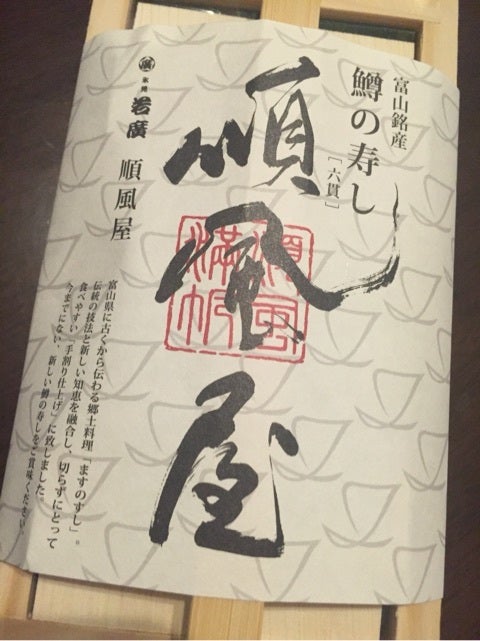 富山銘産
鱒の寿し
［六貫］
順風屋
順風満帆
廣
氷見
岩廣
順風屋
富山県に古くから伝わる郷土料理「ますのすし」。
伝統の技法と新しい知恵を融合し、切らずにとって
食べやすい「手割り仕上げ」に致しました。
今までにない、新しい鱒の寿しをご賞味ください。